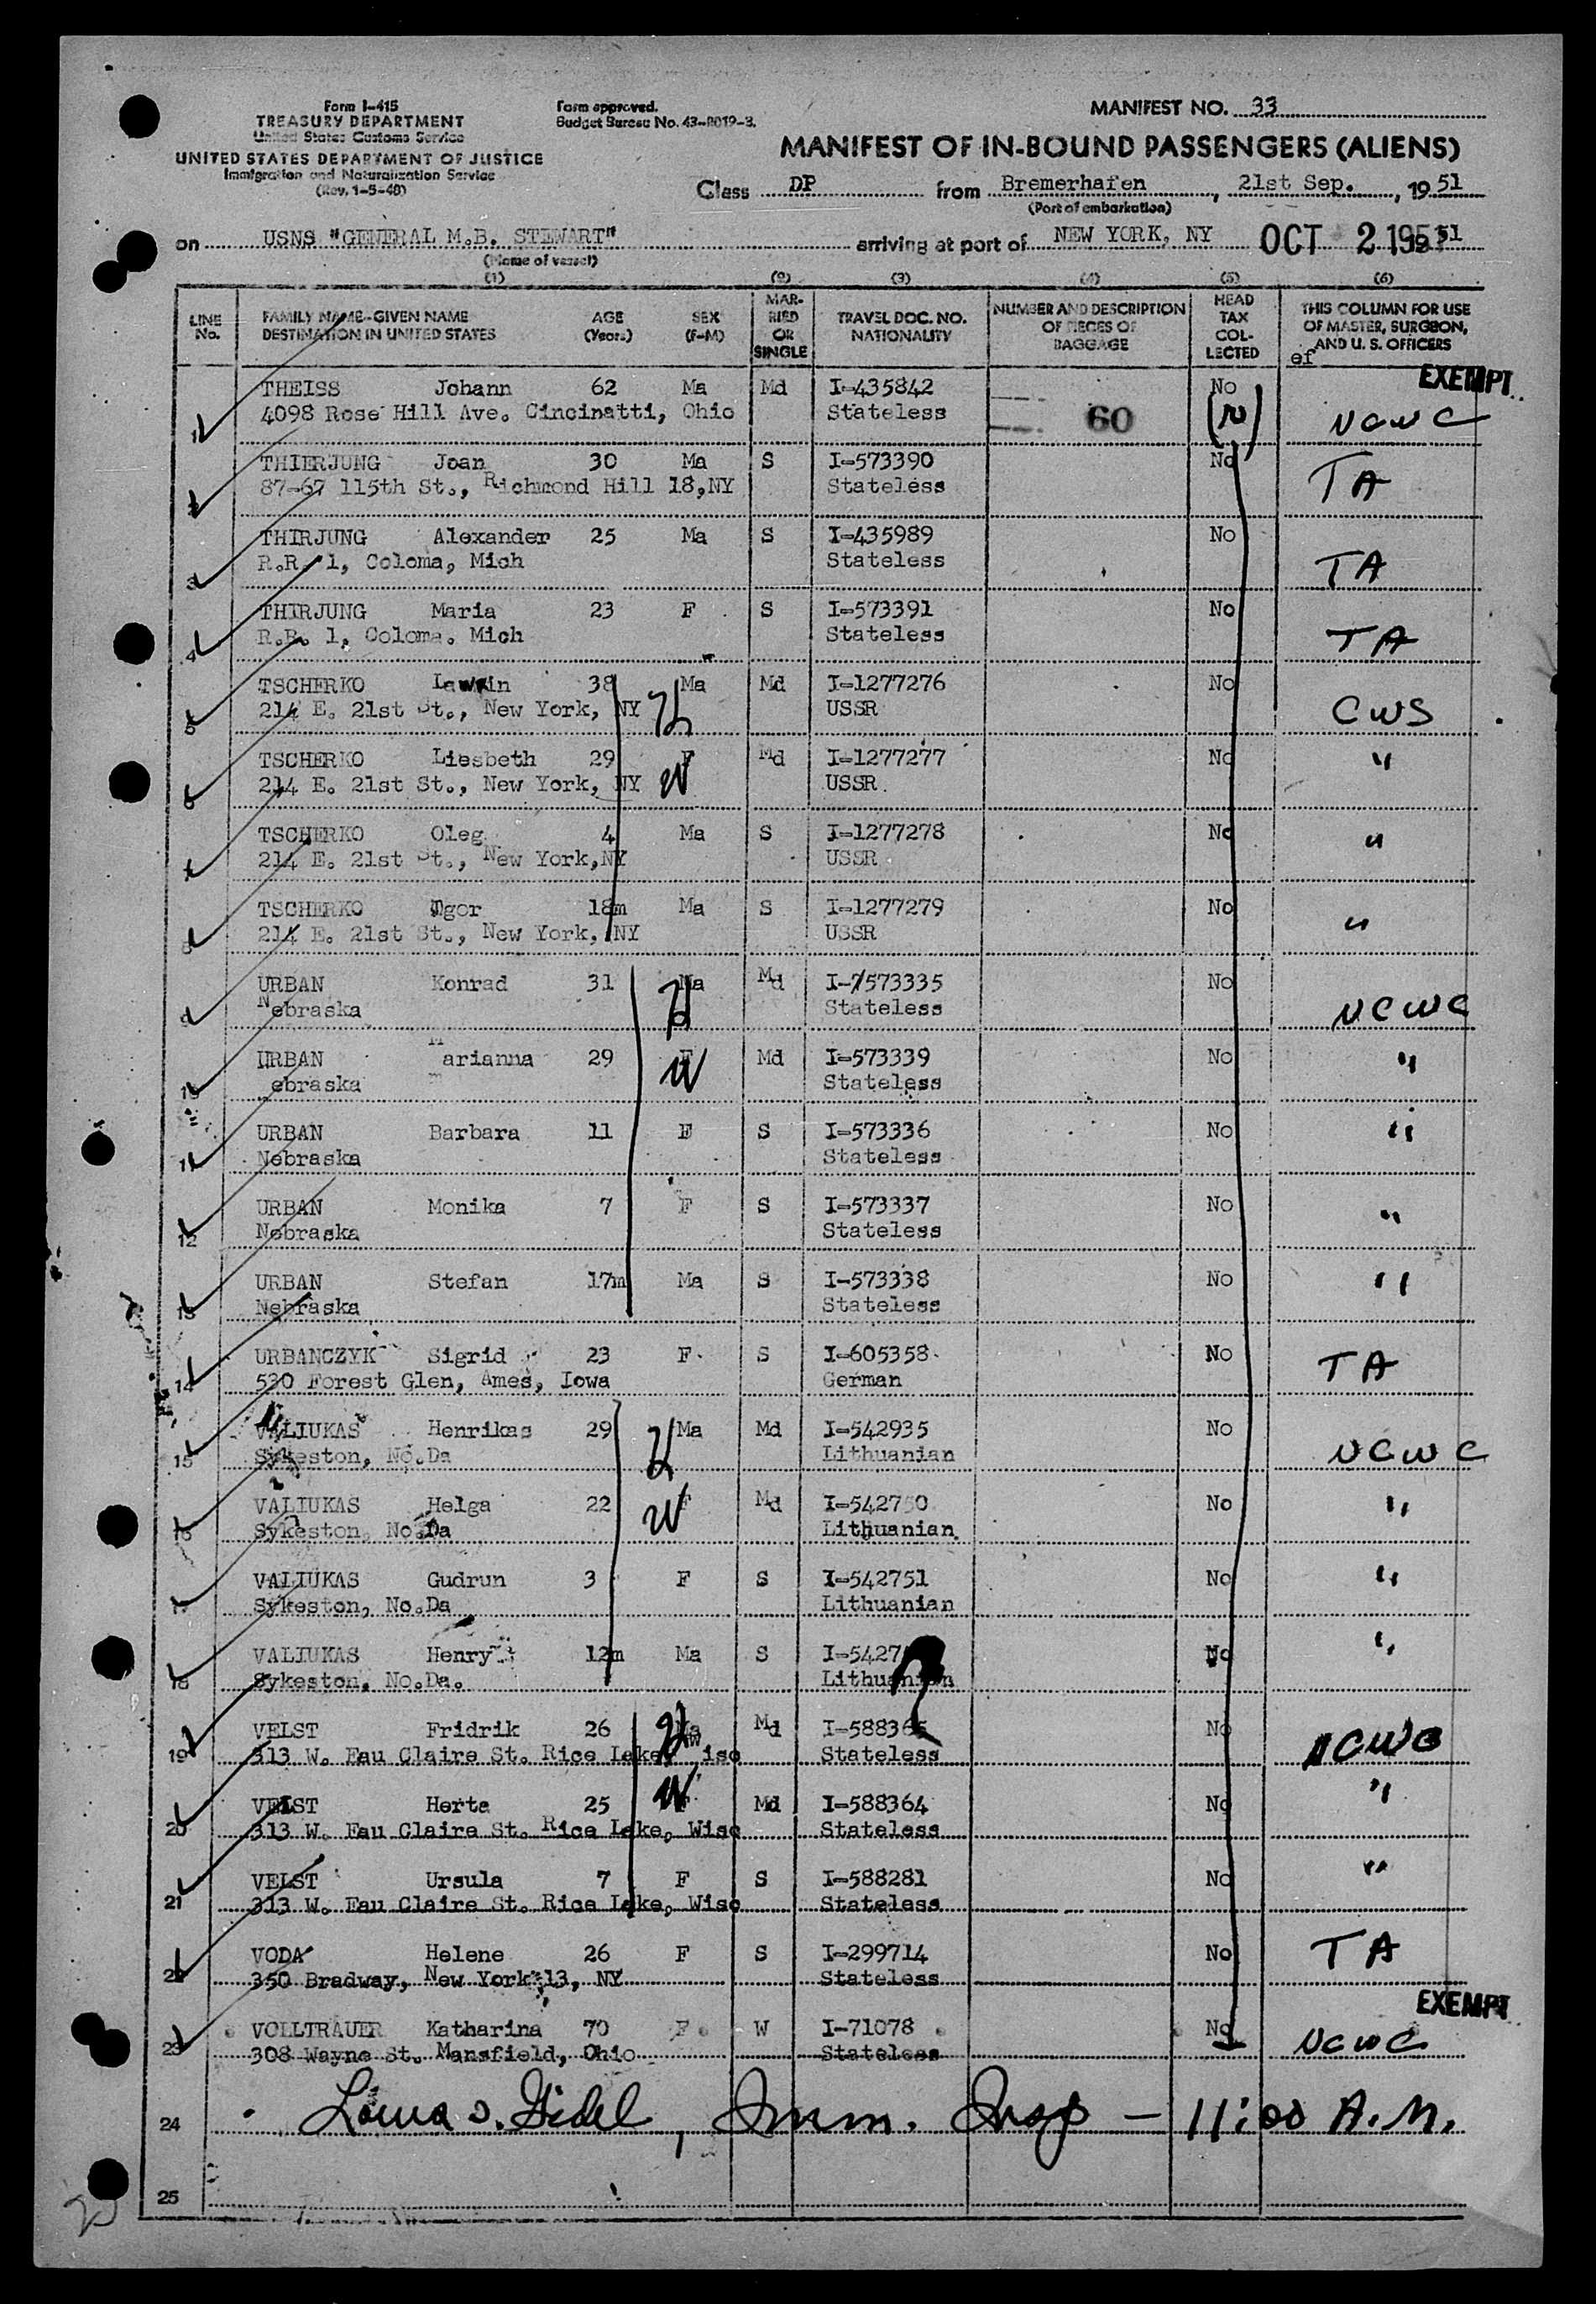 Form I-415
TREASURY DEPARTMENT
United States Customs Service
UNITED STATES DEPARTMENT OF JUSTICE
Immigration and Naturalization Service
(Rev. 1-5-48)
Form approved.
Budget Bureau No. 43-R019-3.
MANIFEST NO. 33
MANIFEST OF IN-BOUND PASSENGERS (ALIENS)
Class DP from Bremerhafen, 21st Sep., 19 51
(Port of embarkation)
on USNS "GENERAL M.B. STEWART" arriving at port of NEW YORK, NY OCT 2 1951 51
(Name of vessel)
(1) (2) (3) (4) (5) (6)
LINE No. FAMILY NAME-GIVEN NAME DESTINATION IN UNITED STATES AGE (Years) SEX (F-M) MARRIED OR SINGLE TRAVEL DOC. NO. NATIONALITY NUMBER AND DESCRIPTION OF PIECES OF BAGGAGE HEAD TAX COLLECTED THIS COLUMN FOR USE OF MASTER, SURGEON, AND U. S. OFFICERS
ef
EXEMPT
1 THEISS Johann 62 Ma Md I-435842 No
4098 Rose Hill Ave. Cincinatti, Ohio Stateless 60 NCWC
2 THIERJUNG Joan 30 Ma S I-573390 No TA
87-67 115th St., Richmond Hill 18,NY Stateless
3 THIRJUNG Alexander 25 Ma S I-435989 No TA
R.R. 1, Coloma, Mich Stateless
4 THIRJUNG Maria 23 F S I-573391 No TA
R.R. 1, Coloma. Mich Stateless
5 TSCHERKO 38 Ma Md I-1277276 No CWS
214 E. 21st St., New York, NY H USSR
6 TSCHERKO Liesbeth 29 F Md I-1277277 No "
214 E. 21st St., New York, NY W USSR
7 TSCHERKO Oleg 4 Ma S I-1277278 No "
214 E. 21st St., New York,NY USSR
8 TSCHERKO Igor 18m Ma S I-1277279 No "
214 E. 21st St., New York, NY USSR
9 URBAN Konrad 31 H Ma Md I-573335 No NCWC
Nebraska Stateless
10 URBAN Marianna 29 F W Md I-573339 No "
ebraska Stateless
11 URBAN Barbara 11 F S I-573336 No "
Nebraska Stateless
12 URBAN Monika 7 F S I-573337 No "
Nebraska Stateless
13 URBAN Stefan 17m Ma S I-573338 No "
Nebraska Stateless
14 URBANCZYK Sigrid 23 F S I-605358 No TA
530 Forest Glen, Ames, Iowa German
15 VALIUKAS Henrikas 29 H Ma Md I-542935 No NCWC
Sykeston, No.Da Lithuanian
16 VALIUKAS Helga 22 W F Md I-542750 No "
Sykeston, No.Da Lithuanian
17 VALIUKAS Gudrun 3 F S I-542751 No "
Sykeston, No.Da Lithuanian
18 VALIUKAS Henry 12m Ma S No "
Sykeston, No.Da. Lithuanian
19 VELST Fridrik 26 H Ma Md No NCWC
313 W. Eau Claire St. Rice Lake, Wisc Stateless
20 VELST Herta 25 W Md I-588364 No "
313 W. Eau Claire St. Rice Lake, Wisc Stateless
21 VELST Ursula 7 F S I-588281 No "
313 W. Eau Claire St. Rice Lake, Wisc Stateless
22 VODA Helene 26 F S I-299714 No TA
350 Bradway, New York 13, NY Stateless
EXEMPT
23 VOLLTRAUER Katharina 70 F W I-71078 No NCWC
308 Wayne St. Mansfield, Ohio Stateless
24 Imm. Insp — 11:00 A.M.
25